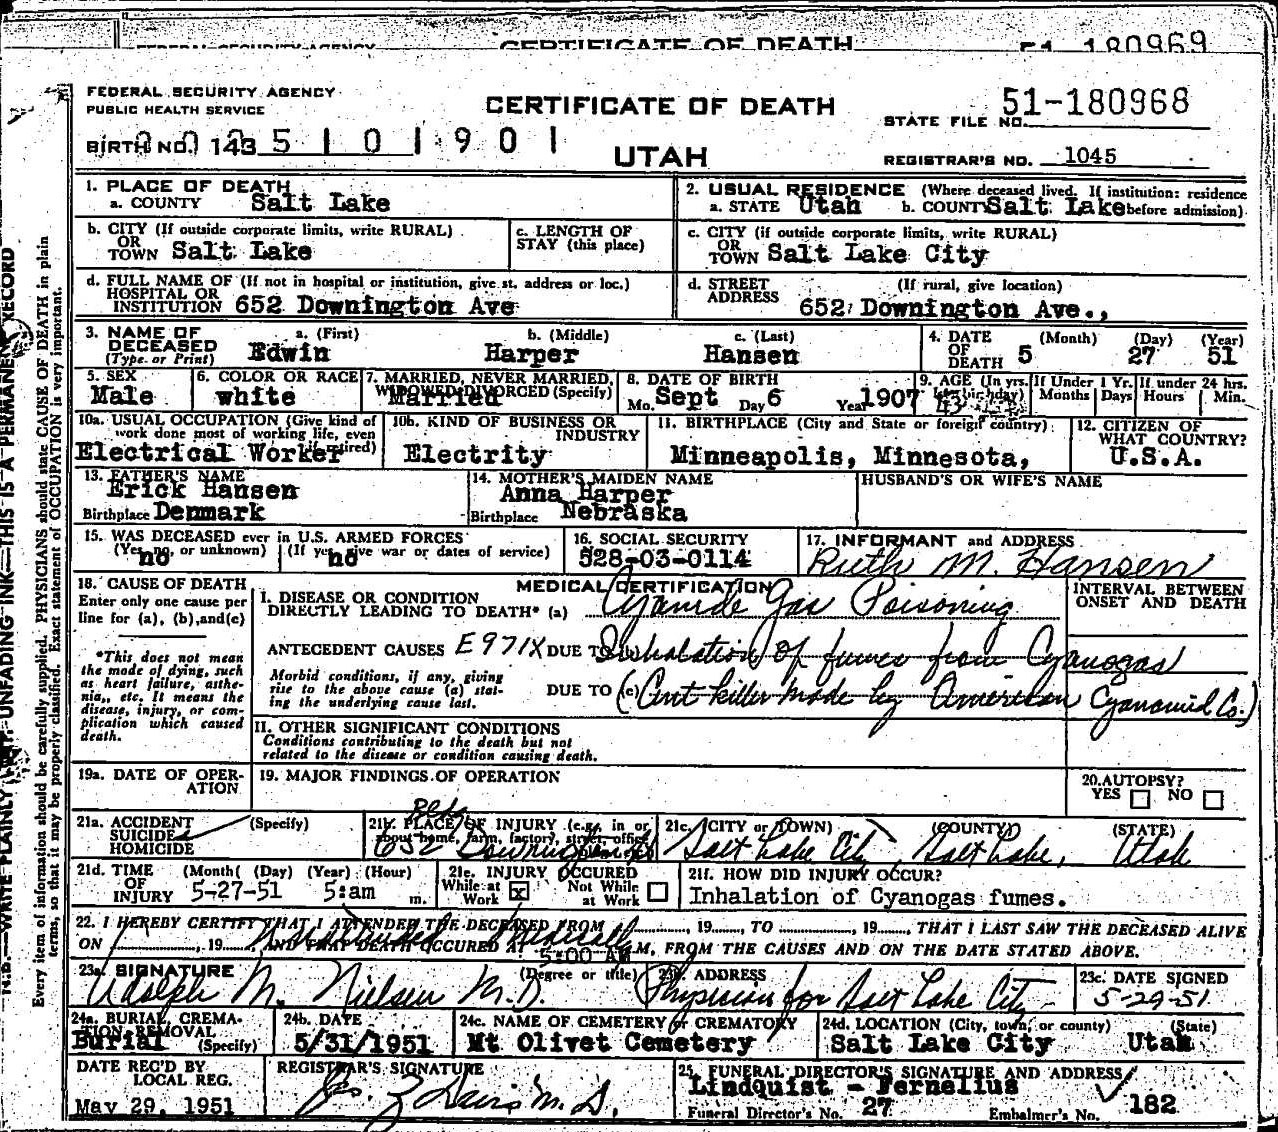 CERTIFICATE OF DEATH 51 180969
FEDERAL SECURITY AGENCY
PUBLIC HEALTH SERVICE
CERTIFICATE OF DEATH
51-180968
STATE FILE NO.
BIRTH NO. 143
5 1 0 1 9 0 1
UTAH
REGISTRAR'S NO. 1045
1. PLACE OF DEATH
a. COUNTY Salt Lake
2. USUAL RESIDENCE (Where deceased lived. If institution: residence
a. STATE Utah b. COUNTY Salt Lake before admission)
b. CITY (If outside corporate limits, write RURAL)
OR
TOWN Salt Lake
c. LENGTH OF
STAY (this place)
c. CITY (if outside corporate limits, write RURAL)
OR
TOWN Salt Lake City
d. FULL NAME OF (If not in hospital or institution, give st. address or loc.)
HOSPITAL OR
INSTITUTION 652 Downington Ave
d. STREET (If rural, give location)
ADDRESS 652 Downington Ave.,
3. NAME OF
DECEASED
(Type or Print)
a. (First)
Edwin
b. (Middle)
Harper
c. (Last)
Hansen
4. DATE (Month) (Day) (Year)
OF
DEATH 5 27 51
5. SEX
Male
6. COLOR OR RACE
white
7. MARRIED, NEVER MARRIED,
WIDOWED, DIVORCED (Specify)
Married
8. DATE OF BIRTH
Mo. Sept Day 6 Year 1907
9. AGE (In yrs.
last birthday)
43
If Under 1 Yr.
Months Days
If under 24 hrs.
Hours Min.
10a. USUAL OCCUPATION (Give kind of
work done most of working life, even
if retired)
Electrical Worker
10b. KIND OF BUSINESS OR
INDUSTRY
Electrity
11. BIRTHPLACE (City and State or foreign country)
Minneapolis, Minnesota,
12. CITIZEN OF
WHAT COUNTRY?
U.S.A.
13. FATHER'S NAME
Erick Hansen
Birthplace Denmark
14. MOTHER'S MAIDEN NAME
Anna Harper
Birthplace Nebraska
HUSBAND'S OR WIFE'S NAME
15. WAS DECEASED ever in U.S. ARMED FORCES
(Yes, no, or unknown) (If yes, give war or dates of service)
no no
16. SOCIAL SECURITY
528-03-0114
17. INFORMANT and ADDRESS
Ruth M. Hansen
18. CAUSE OF DEATH
Enter only one cause per
line for (a), (b), and (c)
*This does not mean
the mode of dying, such
as heart failure, asthe-
nia, etc. It means the
disease, injury, or com-
plication which caused
death.
MEDICAL CERTIFICATION
I. DISEASE OR CONDITION
DIRECTLY LEADING TO DEATH* (a) Cyanide Gas Poisoning
ANTECEDENT CAUSES E971X DUE TO (b) Inhalation of fumes from Cyanogas
Morbid conditions, if any, giving
rise to the above cause (a) stat-
ing the underlying cause last.
DUE TO (c) (Ant killer made by American Cyanamid Co.)
INTERVAL BETWEEN
ONSET AND DEATH
II. OTHER SIGNIFICANT CONDITIONS
Conditions contributing to the death but not
related to the disease or condition causing death.
19a. DATE OF OPER-
ATION
19. MAJOR FINDINGS OF OPERATION
20. AUTOPSY?
YES NO
21a. ACCIDENT (Specify)
SUICIDE
HOMICIDE
21b. PLACE OF INJURY (e.g., in or
about home, farm, factory, street, office
652 Downington
21c. (CITY or TOWN) (COUNTY) (STATE)
Salt Lake City, Salt Lake, Utah
21d. TIME (Month) (Day) (Year) (Hour)
OF
INJURY 5-27-51 5:am m.
21e. INJURY OCCURED
While at Work x Not While at Work
21f. HOW DID INJURY OCCUR?
Inhalation of Cyanogas fumes.
22. I HEREBY CERTIFY THAT I ATTENDED THE DECEASED FROM , 19 , TO , 19 , THAT I LAST SAW THE DECEASED ALIVE
ON , 19 , AND THAT DEATH OCCURED AT M, FROM THE CAUSES AND ON THE DATE STATED ABOVE.
5:00 AM
23a. SIGNATURE (Degree or title)
Adolph M. Nielsen M.D.
23b. ADDRESS
Physician for Salt Lake City
23c. DATE SIGNED
5-29-51
24a. BURIAL, CREMA-
TION, REMOVAL
(Specify)
Burial
24b. DATE
5/31/1951
24c. NAME OF CEMETERY or CREMATORY
Mt Olivet Cemetery
24d. LOCATION (City, town, or county) (State)
Salt Lake City Utah
DATE REC'D BY
LOCAL REG.
May 29, 1951
REGISTRAR'S SIGNATURE
25. FUNERAL DIRECTOR'S SIGNATURE AND ADDRESS
Lindquist - Fernelius
Funeral Director's No. 27 Embalmer's No. 182
N.B.—WRITE PLAINLY WITH UNFADING INK—THIS IS A PERMANENT RECORD
Every item of information should be carefully supplied. PHYSICIANS should state CAUSE OF DEATH in plain
terms, so that it may be properly classified. Exact statement of OCCUPATION is very important.